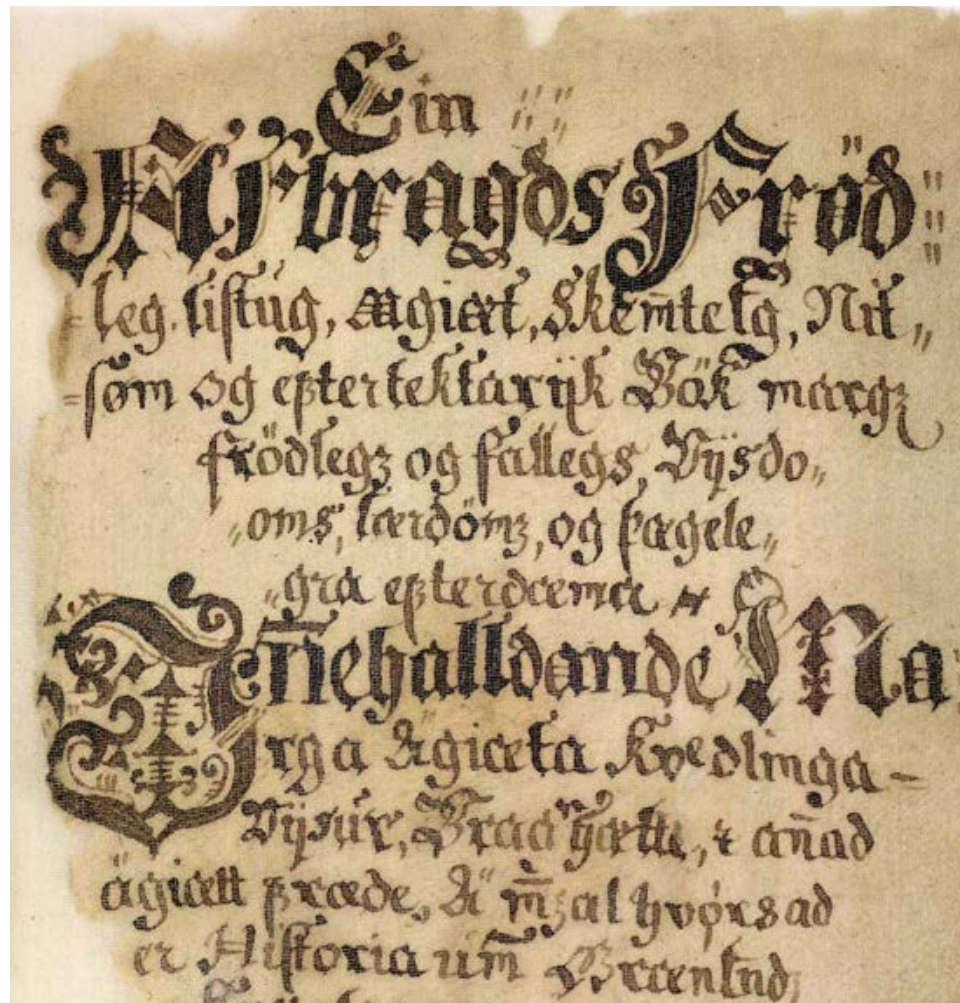 Ein
Afbragds Fröd
leg, listug, Agiæt, Skem̄teleg, Nit„
=søm og eftertektarijk Bök margz
frödlegz og fallegs, Vijsdo„
„oms, lærdömz, og fægele„
„gra efterdæma
Iñehalldande Ma
rga Agiæta Kvedlinga –
Vijsur, Bragarhætte, & añad
ägiætt fræde, Ä m̄z al hvørs ad
er Historia um̄ Grænlnd